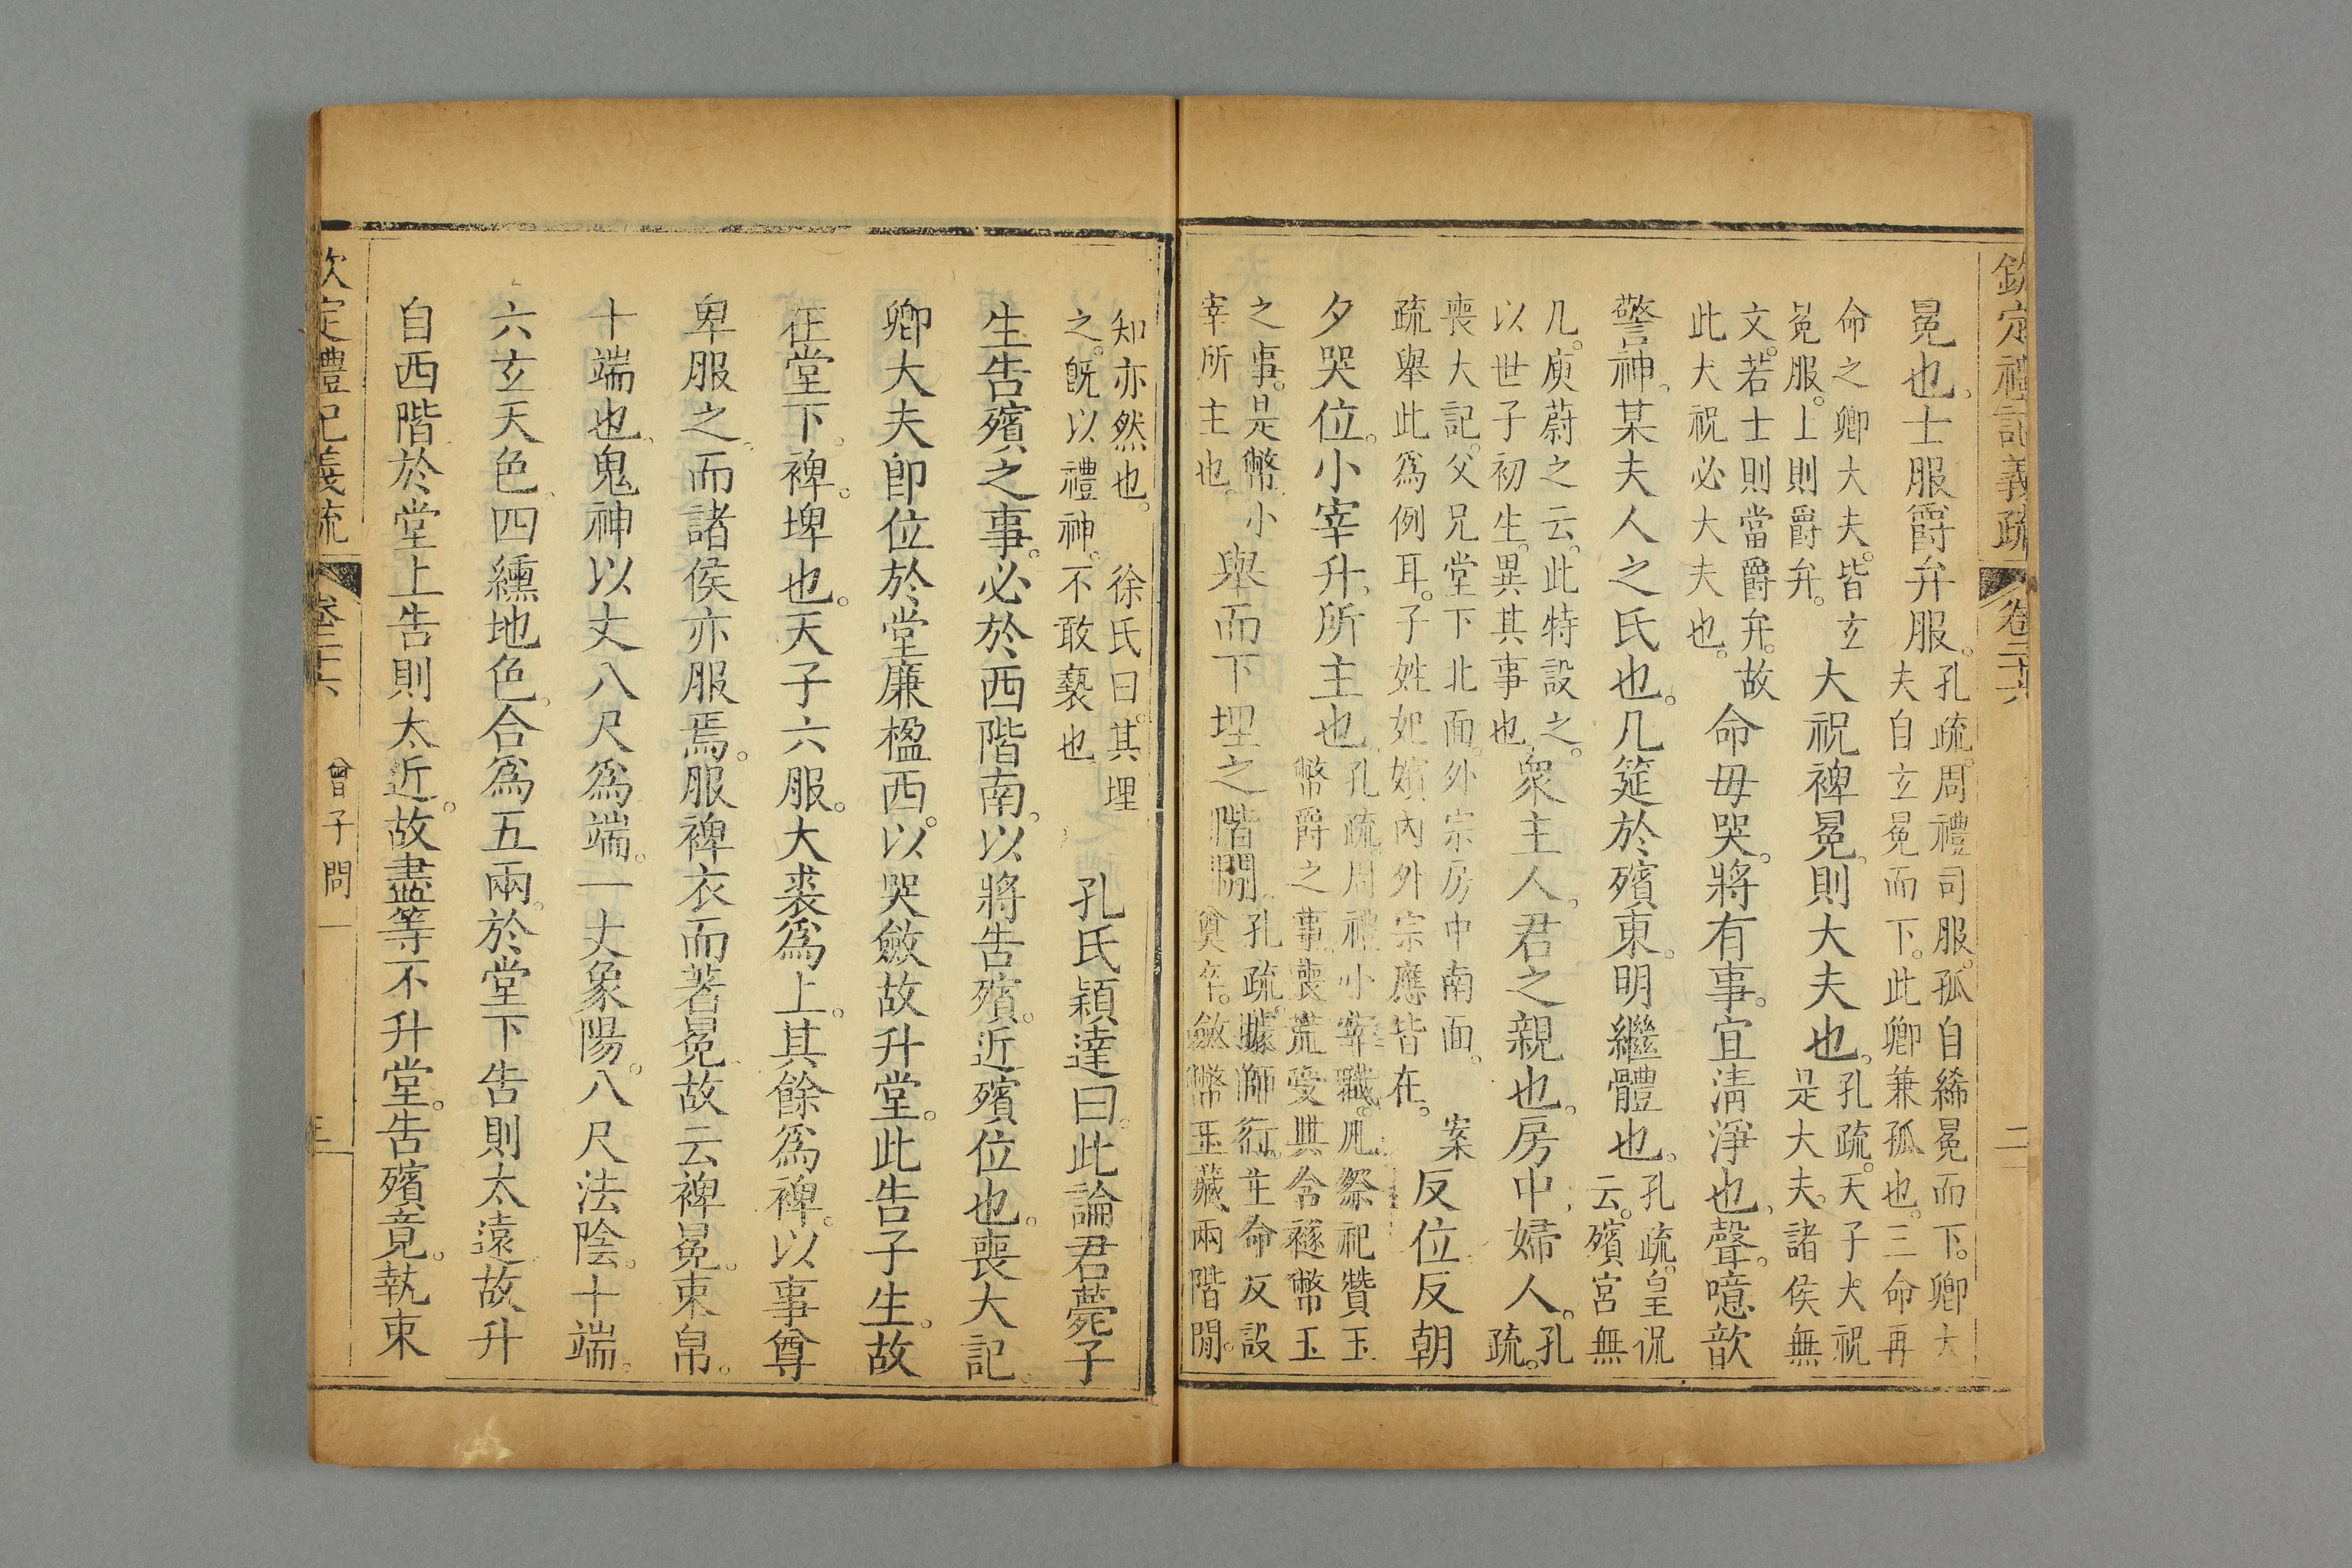 欽定禮記義疏 卷二十六 二
冕也。士服爵弁服。孔疏。周禮司服。孤自絺冕而下。卿大
夫自玄冕而下。此卿兼孤也。三命再
命之卿大夫。皆玄
冕服。上則爵弁。大祝裨冕。則大夫也。孔疏。天子大祝
是大夫。諸侯無
文。若士則當爵弁。故
此大祝必大夫也。命毋哭。將有事。宜淸淨也。聲。噫歆
警神。某夫人之氏也。几筵於殯東。明繼體也。孔疏。皇侃
云。殯宮無
几。庾蔚之云。此特設之。
以世子初生。異其事也。衆主人。君之親也。房中。婦人。孔
疏。
喪大記。父兄堂下北面。外宗房中南面。 案
疏舉此爲例耳。子姓妃嬪內外宗應皆在。反位反朝
夕哭位。小宰升。所主也。孔疏。周禮小宰職。凡祭祀贊玉
幣爵之事。喪荒受其含襚幣玉
之事。是幣。小
宰所主也。舉而下埋之階閒。孔疏。據師行。主命反設
奠卒。斂幣玉藏兩階閒。
知亦然也。 徐氏曰。其埋
之。旣以禮神。不敢褻也。 孔氏穎達曰。此論君薨子
生告殯之事。必於西階南。以將告殯。近殯位也。喪大記。
卿大夫卽位於堂廉楹西。以哭斂故升堂。此告子生。故
在堂下。裨。埤也。天子六服。大裘爲上。其餘爲裨。以事尊
卑服之。而諸侯亦服焉。服裨衣而著冕。故云裨冕。束帛。
十端也。鬼神以丈八尺爲端。一丈象陽。八尺法陰。十端。
六玄天色。四纁地色。合爲五兩。於堂下告則太遠。故升
自西階於堂上告則太近。故盡等不升堂。告殯竟。執束
欽定禮記義疏 卷二十六 曾子問一 三